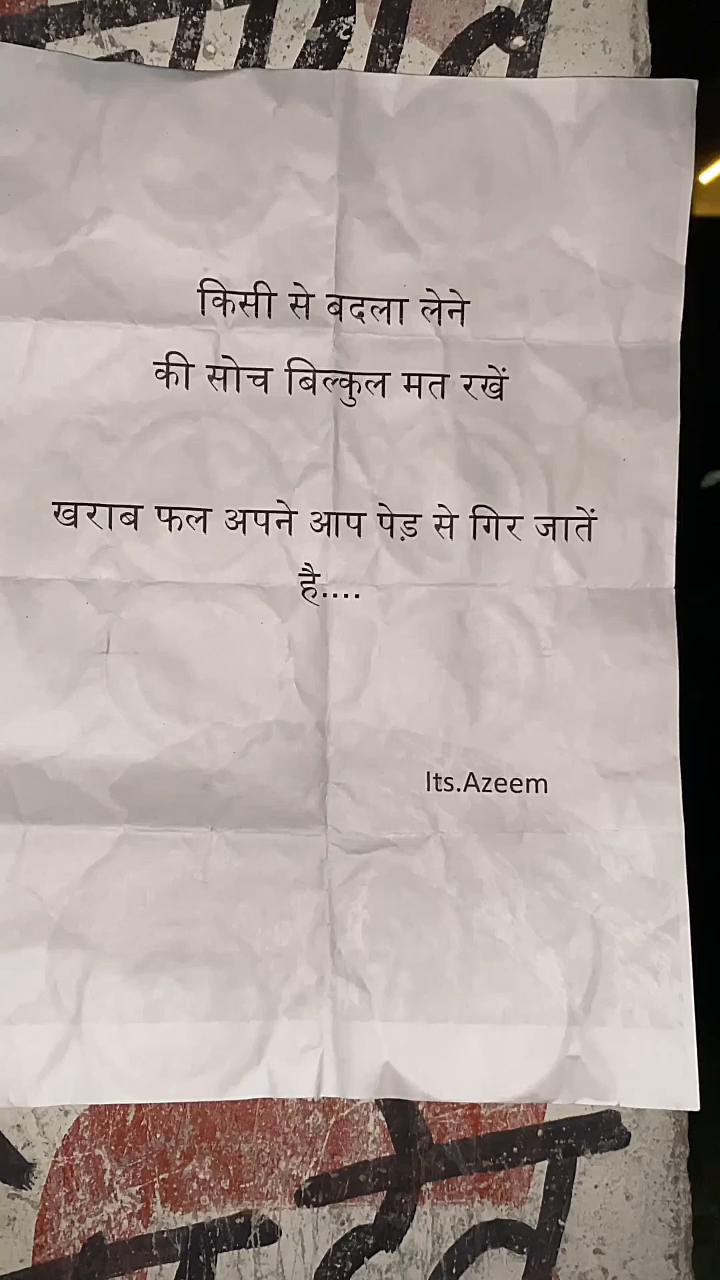 किसी से बदला लेने
की सोच बिल्कुल मत रखें
खराब फल अपने आप पेड़ से गिर जातें
है....
Its.Azeem